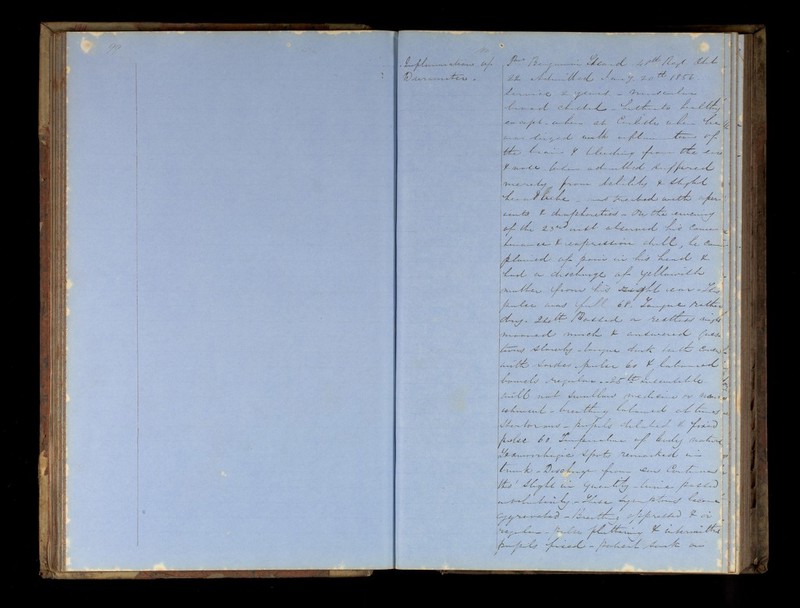 Inflammation of
Duramater.
Benjamin 40th Regt
22 Admitted Jany 20th 1856
Service 2 years – muscular
broad chested – hitherto healthy
except when at when he
was with of
the brain & bleeding from the ear
& nose when admitted suffered
merely from debility & slight
headache and treated with aper
ients & diaphoretics – On the evening
of the 23rd inst observed his coun
tenance & expression dull, he com
plained of pain in his head &
had a discharge of yellowish
matter from his right ear – The
pulse was full 68. Tongue rather
dry – 24th Passed a restless night
moaned much & answered ques
tions slowly tongue dark and cover
with sordes – pulse 60 & balanced
bowels regular – 25th Insensible
will not swallow medicine or nour
ishment – breathing at times
stertorous – pupils dilated & fixed
pulse 60 Temperature of body natural
Haemorrhagic spots remarked on
trunk – Discharge from ear continued
tho' slight in quantity – urine passed
involuntarily – These symptoms became
aggravated – Breathing oppressed & ir
regular – pulse fluttering & intermitted
pupils fixed – patient sunk on